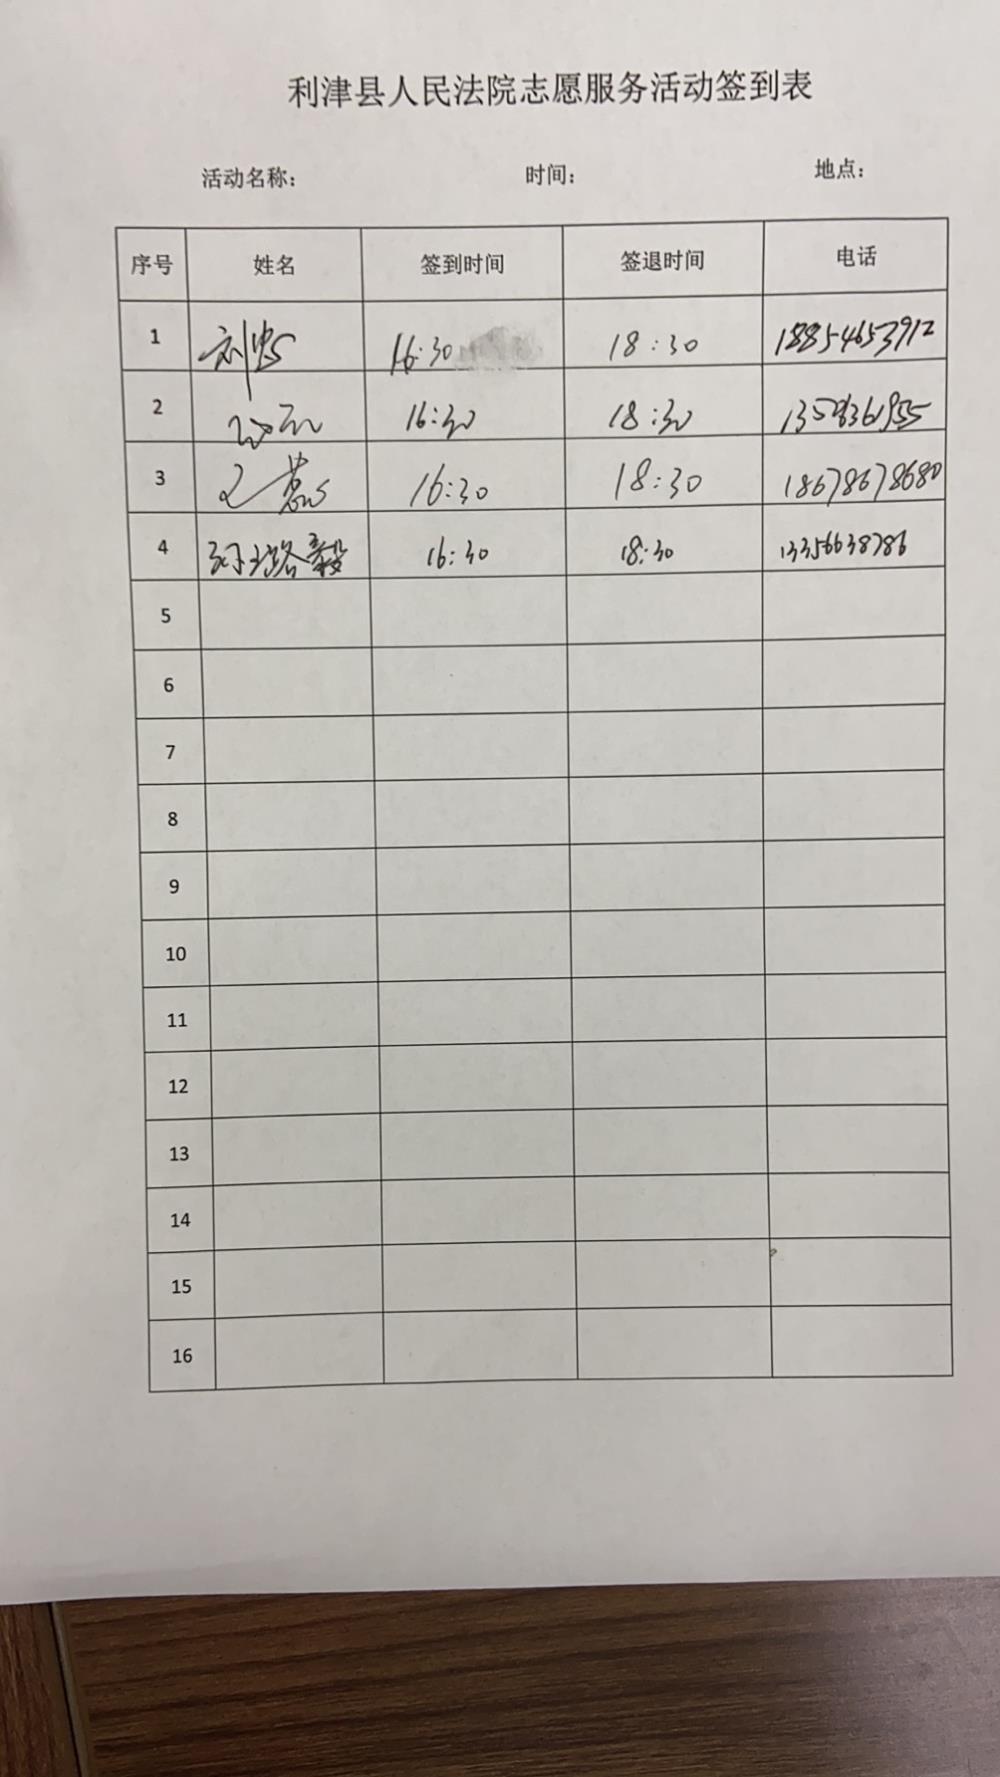 利津县人民法院志愿服务活动签到表
活动名称: 时间: 地点:
序号 姓名 签到时间 签退时间 电话
1 16:30 18:30 18854653912
2 16:30 18:30
3 16:30 18:30 18678678680
4 孙路毅 16:30 18:30 13356638786
5
6
7
8
9
10
11
12
13
14
15
16